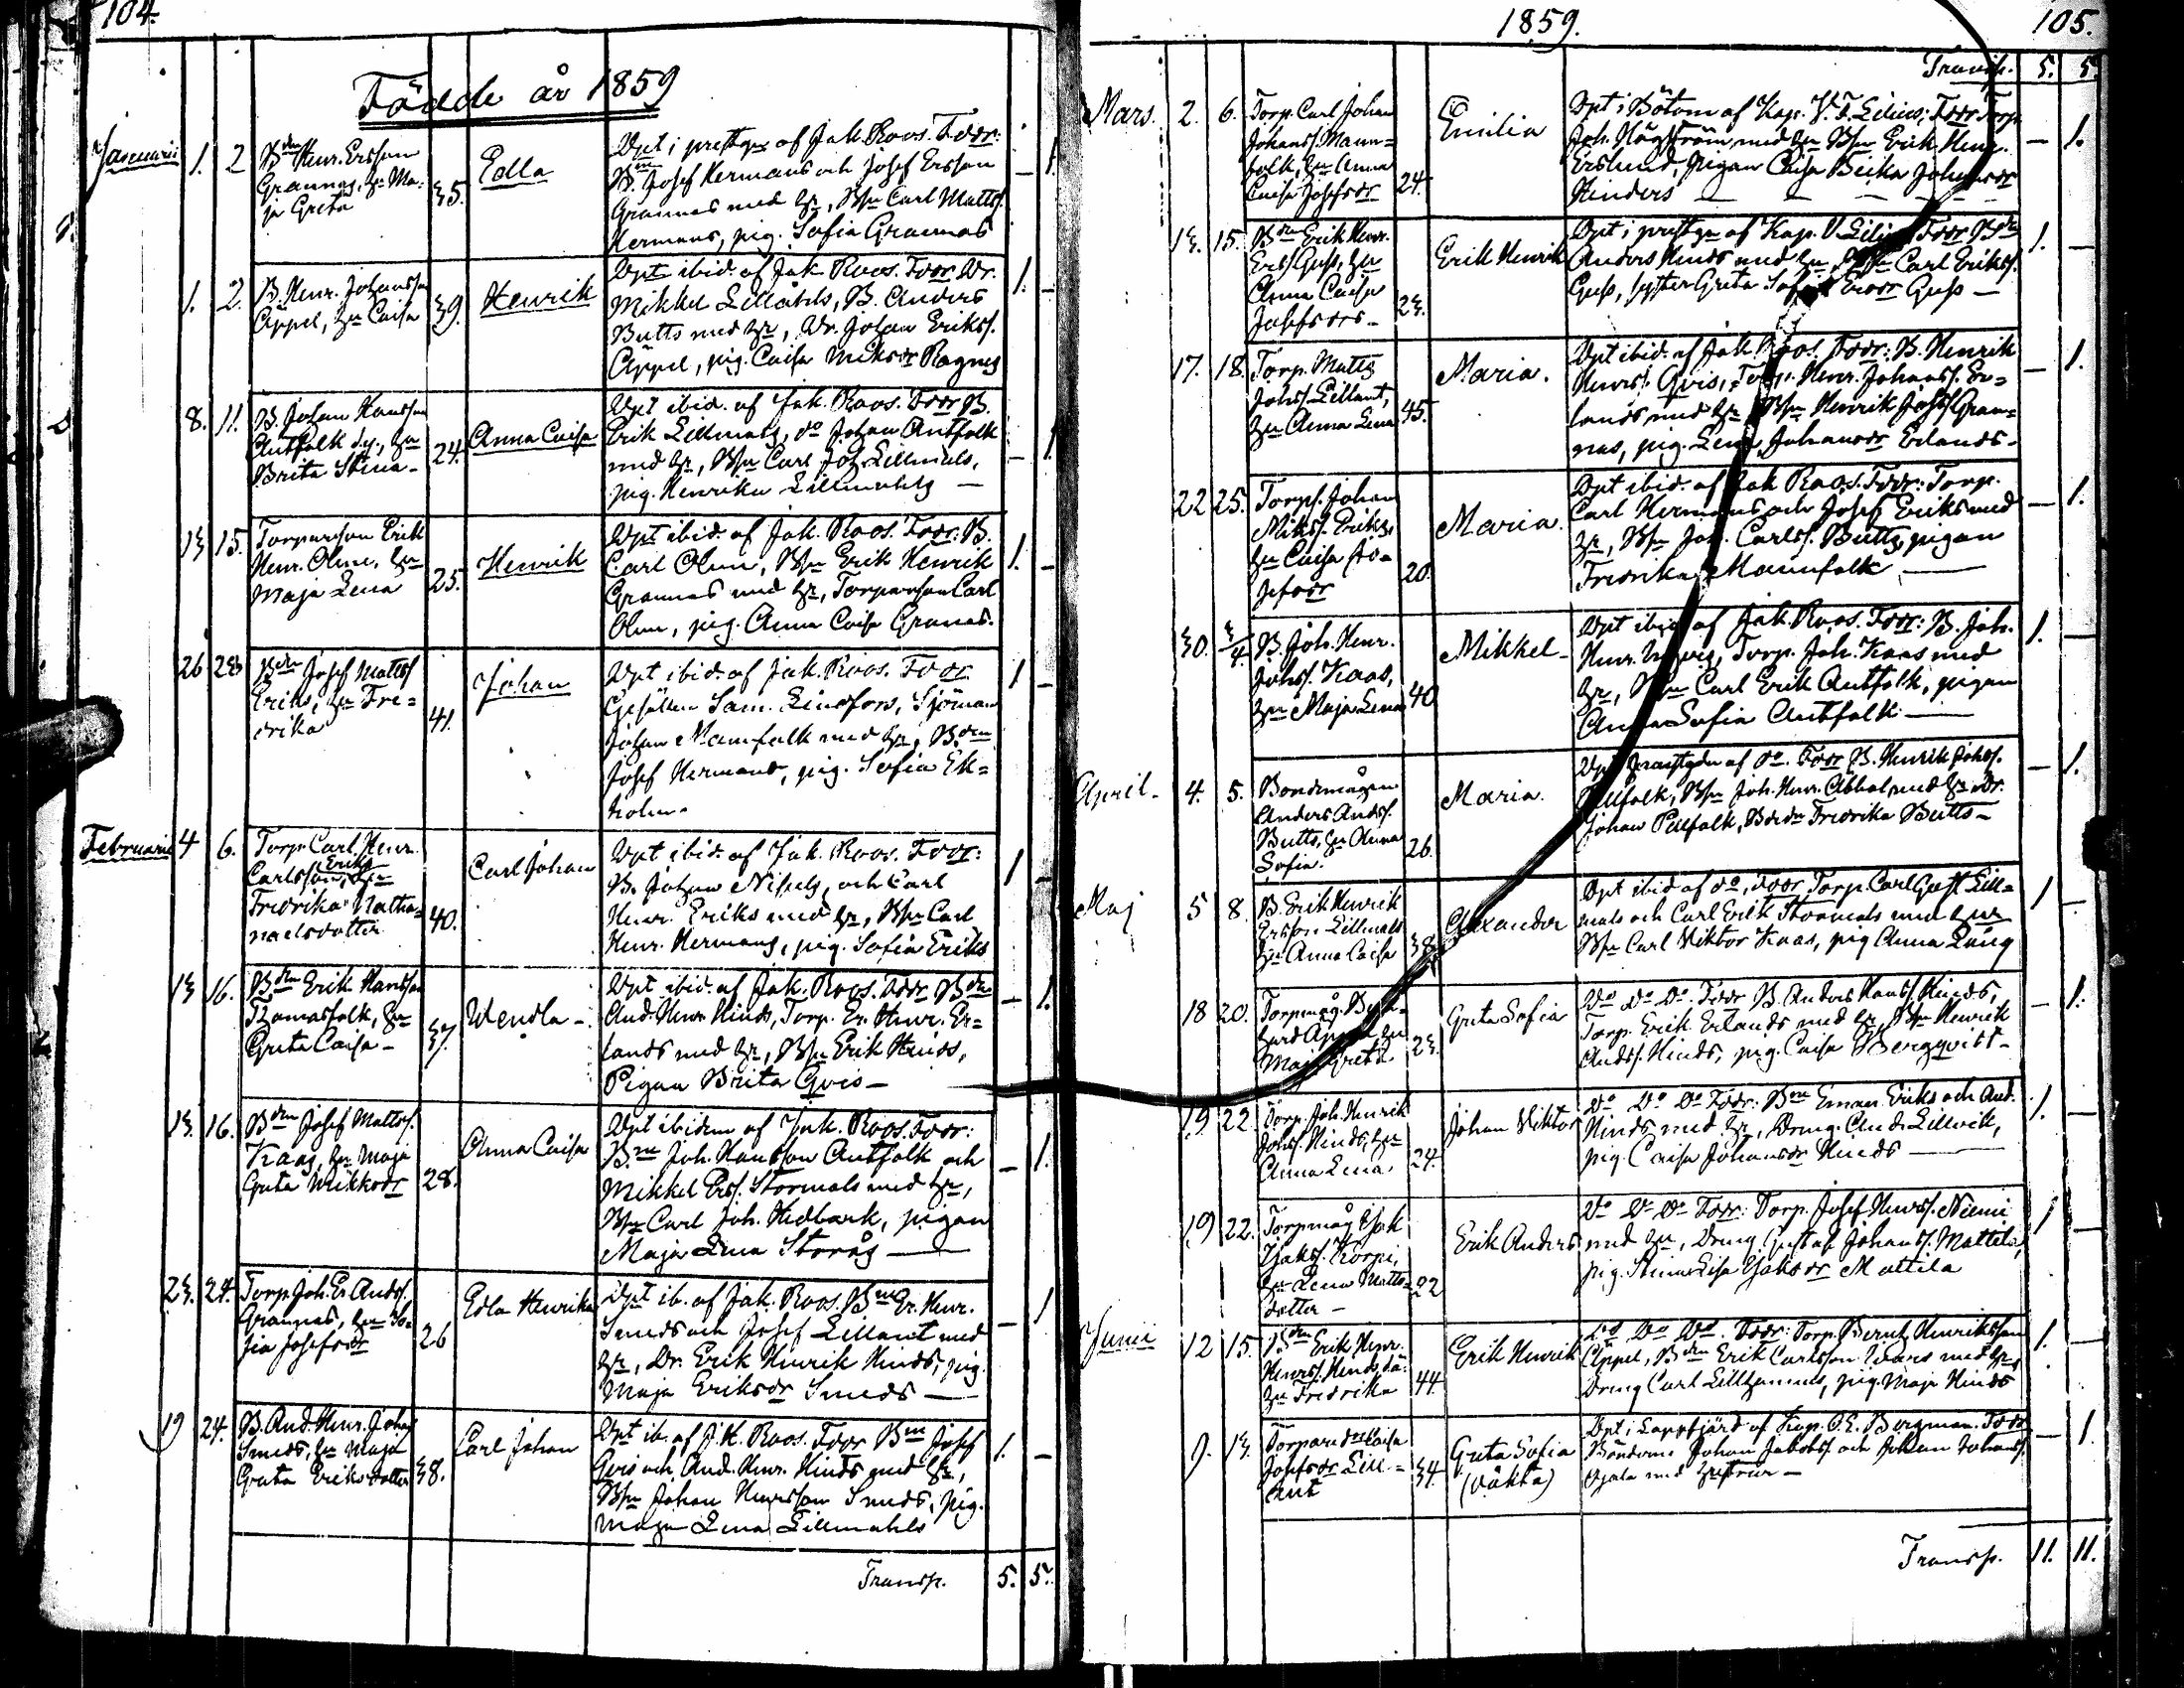 104.
Födde år 1859
Januarii 1. 2 Bdn Henr. Ersson
Grannas, hu Ma-
ja Greta 35. Edla
Dpt i prestgn af Jak. Roos. Fddr:
B. Josef Hermans och Josef Ersson
Grannas med hr, Bsn Carl Matts.
Hermans, pig. Sofia Grannas — 1.
1. 2. B. Henr. Johansson
Äppel, hu Caisa 39. Henrik
Dpt ibid. af Jak. Roos. Fddr Dr.
Mikkel Lillåhls, B. Anders
Butts med hr, Dr. Johan Eriks.
Äppel, pig. Caisa Miksdr Ragnes 1. —
8. 11. B. Johan Hansson
Antfolk d.y., hu
Brita Stina 24. Anna Caisa
Dpt ibid. af Jak. Roos. Fddr B.
Erik Lillmals, do Johan Antfolk
med hr, Bsn Carl Joh. Lillmals,
pig. Henrika Lillmahls — 1
13 15. Torparson Erik
Henr. Olin, hu
Maja Lena 25. Henrik
Dpt ibid. af Jak. Roos. Fddr: B.
Carl Olin, Bsn Erik Henrik
Grannas med hr, Torparson Carl
Olin, pig. Anna Caisa Granas. 1. —
26 28 Bdn Josef Matts
Eriks, hu Fre-
drika 41. Johan
Dpt ibid. af Jak. Roos. Fddr
Gesällen Sam. Lindfors, Sjöman
Johan Mannfolk med hr, Bdn
Josef Hermans, pig. Sofia Ek-
holm. 1 —
Februarii 4 6. Torp. Carl Henr.
Carlsson Eriks, hu
Fredrika Natha-
naelsdotter 40. Carl Johan
Dpt ibid. af Jak. Roos. Fddr:
B. Johan Nissels, och Carl
Henr. Eriks med hr, Bsn Carl
Henr. Hermans, pig. Sofia Eriks 1
13 16. Bdn Erik Hansson
Thomasfolk, hu
Greta Caisa 37. Wendla
Dpt ibid. af Jak. Roos. Fddr Bdn
And. Henr. Hinds, Torp. Er. Henr. Er-
lands med hr, Bsn Erik Hinds,
Pigan Brita Qvis — 1.
13. 16. Bdn Josef Matts.
Kaas, hu Maja
Greta Mikksdr 28. Anna Caisa
Dpt ibidem af Jak. Roos. Fddr:
Bne Joh. Hansson Antfolk och
Mikkel Ers. Stormals med hr,
Bsn Carl Joh. Hedback, pigan
Maja Lena Storås — 1.
23. 24. Torp. Joh. Er. Ands.
Grannas, hu So-
fia Josefsdr 26 Edla Henrika
Dpt ib. af Jak. Roos. Bne Er. Henr.
Smeds och Josef Lillant med
hr, Dr. Erik Henrik Hinds, pig.
Maja Eriksdr Smeds — 1
19 24. B. And. Henr. Johans
Smeds, hu Maja
Greta Eriksdotter 38. Carl Johan
Dpt ib. af J.K. Roos. Fddr Bne Josef
Qvis och And. Henr. Hinds med hr,
Bsn Johan Henrsson Smeds, pig.
Maja Lena Lillmahls 1. —
Transp. 5. 5.
1859. 105.
Transp. 5. 5.
Mars. 2. 6. Torp. Carl Johan
Johans. Mann-
folk, hu Anna
Caisa Josefsdr 24. Emilia
Dpt i Bötom af Kap. V. T. Lilius; Fddr Torp.
Joh. Hägström med hr Bsn Erik Henr.
Erslund, Pigan Caisa Beika Johansdr
Hinders — 1.
13. 15. Bdn Erik Henr.
Ers. Guss, hu
Anna Caisa
Josefsdrs 23. Erik Henrik
Dpt i prestgn af Kap. V. Lilius Fddr Bdn
Anders Hinds med hr, Bsn Carl Eriks.
Guss, syster Greta Sofia Ersdr Guss 1. —
17. 18. Torp. Matts
Johs. Lillant,
hu Anna Lena 45. Maria.
Dpt ibid. af Jak. Roos. Fddr: B. Henrik
Henrs. Qvis, Torp. Henr. Johans. Er-
lands med hr Bsn Henrik Johs. Gran-
nas, pig. Lena Johansdr Erlands — 1.
22 25. Torps. Johan
Miks. Eriks,
hu Caisa Jo-
sefsdr 20. Maria.
Dpt ibid. af Jak Roos. Fddr: Torp.
Carl Hermans och Josef Eriks med
hr, Bsn Joh. Carls. Butts, pigan
Fredrika Mannfolk — 1.
30. 3/4. B. Joh. Henr.
Johs. Kaas,
hu Maja Lena 40 Mikkel
Dpt ibid af Jak. Roos. Fddr: B. Joh.
Henr. Torp. Joh. Kaas med
hr, Bsn Carl Erik Antfolk, pigan
Anna Sofia Antfolk 1. —
April 4. 5. Bondemågen
Anders Ands.
Butts, hu Anna
Sofia. 26. Maria.
Dpt prestgdn af do. Fddr B. Henrik Johs.
Pellfolk, Bsn Joh. Henr. Abbal med hr Dr.
Johan Pellfolk, Fredrika Butts — 1.
Maj 5 8. B. Erik Henrik
Ersson Lillmals
hu Anna Caisa 38. Alexander
Dpt ibid af do, Fddr Torp. Carl Gust. Lill-
mals och Carl Erik Stormals med hur
Bsn Carl Viktor Kaas, pig Anna Lång 1 —
18 20. Torpmåg. Bern-
hard Äppel, hu
Maja Greta 23. Greta Sofia
Do Do Do. Fddr B. Anders Hans. Hinds,
Torp. Erik Erlands med hr, Bsn Henrik
Ands. Hinds, pig. Caisa Bergqvist — 1.
19. 22. Torp. Joh. Henrik
Johs. Hinds, hu
Anna Lena. 24. Johan Viktor
Do Do Do Fddr: Bne Eman. Eriks och And.
Hinds med hr, Dreng. And. Lillvik,
pig. Caisa Johansdr Hinds 1. —
19 22. Torpmåg Isak
Isaks. Korpi,
hu Lena Matts-
dotter 22 Erik Anders
Do Do Do Fddr: Torp. Josef Henrs. Niemi
med hu, Dreng Gustaf Johans. Mattila,
pig. Stina Lisa Isaksdr Mattila 1 —
Junii 12 15. Bdn Erik Henr.
Henrs. Hinds,
hu Fredrika 44. Erik Henrik
Do Do Do. Fddr: Torp. Bernh. Henriksson
Äppel, Bdn Erik Carlsson Ivars med hr,
Dreng Carl Lillhannus, pig. Maja Hinds 1.
9. 13. Torparedr Caisa
Josefsdr Lill-
ant 34. Greta Sofia
(oäkta)
Dpt i Lappfjärd af Kap. O. E. Bergman. Fddr
Bönderne Johan Jakobs. och Johan Johans.
med hustrur — 1.
Transp. 11. 11.